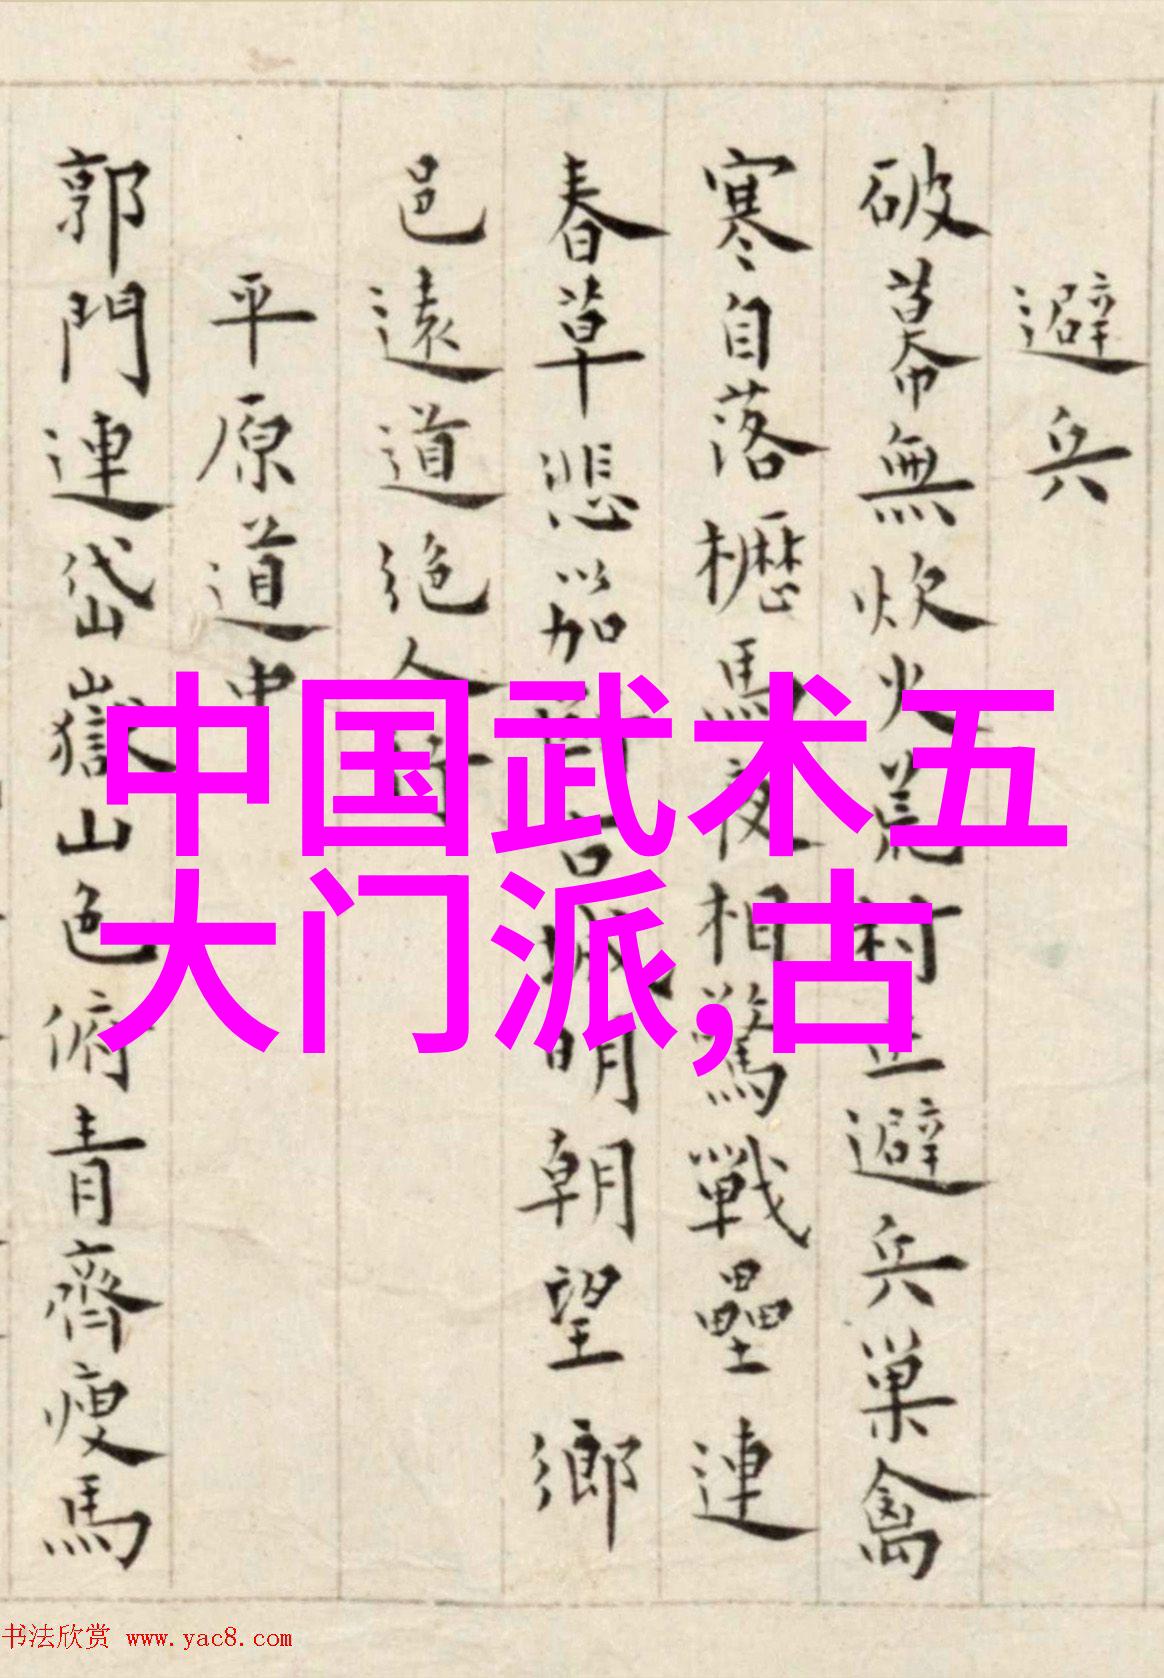 避兵
破幕無炊火荒村且避兵巢禽
寒自落櫪馬夜相驚戰壘連
春草悲笳城明朝望鄉
邑遠道絶人
平原道中
郭門連岱嶽山色俯青齊瘦馬
中国武术五
大门派,古
书法欣赏 www.yac8.com